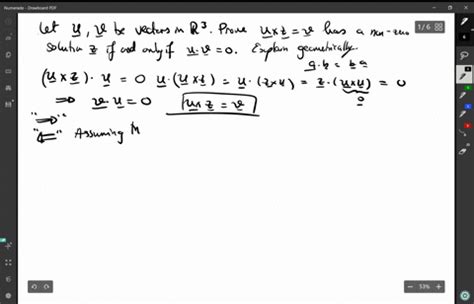 Numerade - Drawboard PDF
Let u, v be vectors in R³. Prove u×z = v has a non-zero
1/6
solution z if and only if u·v = 0. Explain geometrically.
a·b = b·a
(u×z)·u = 0 u·(u×z) = u·(z×u) = z·(u×u) = 0
0
⇒ v·u = 0 u×z = v
"⇒"
"⇐" Assuming
53%